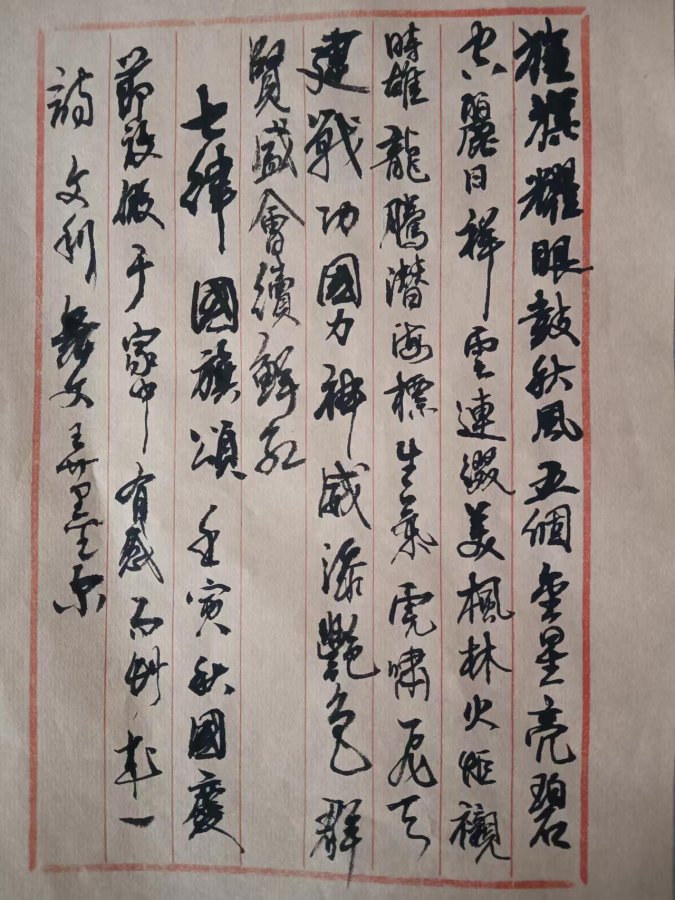 旌旗耀眼鼓秋风五個金星亮碧
空麗日祥雲連綴美枫林火炬襯
時雄龍騰潜海標生氣虎嘯飛天
建戰功國力神威添艷色群
賢盛會續鮮红
七律國旗頌壬寅秋國慶
節設版于家中有感而
詩文利